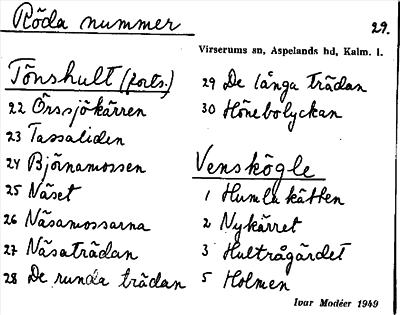 Röda nummer
29.
Virserums sn, Aspelands hd, Kalm. l.
Tönshult (forts.)
22 Örssjökärren
23 Tassaliden
24 Björnamossen
25 Näset
26 Näsamossarna
27 Näsaträdan
28 De runda trädan
29 De långa trädan
30 Hönebolyckan
Venskögle
1 Humlekätten
2 Nykärret
3 Hultrågärdet
5 Holmen
Ivar Modéer 1949